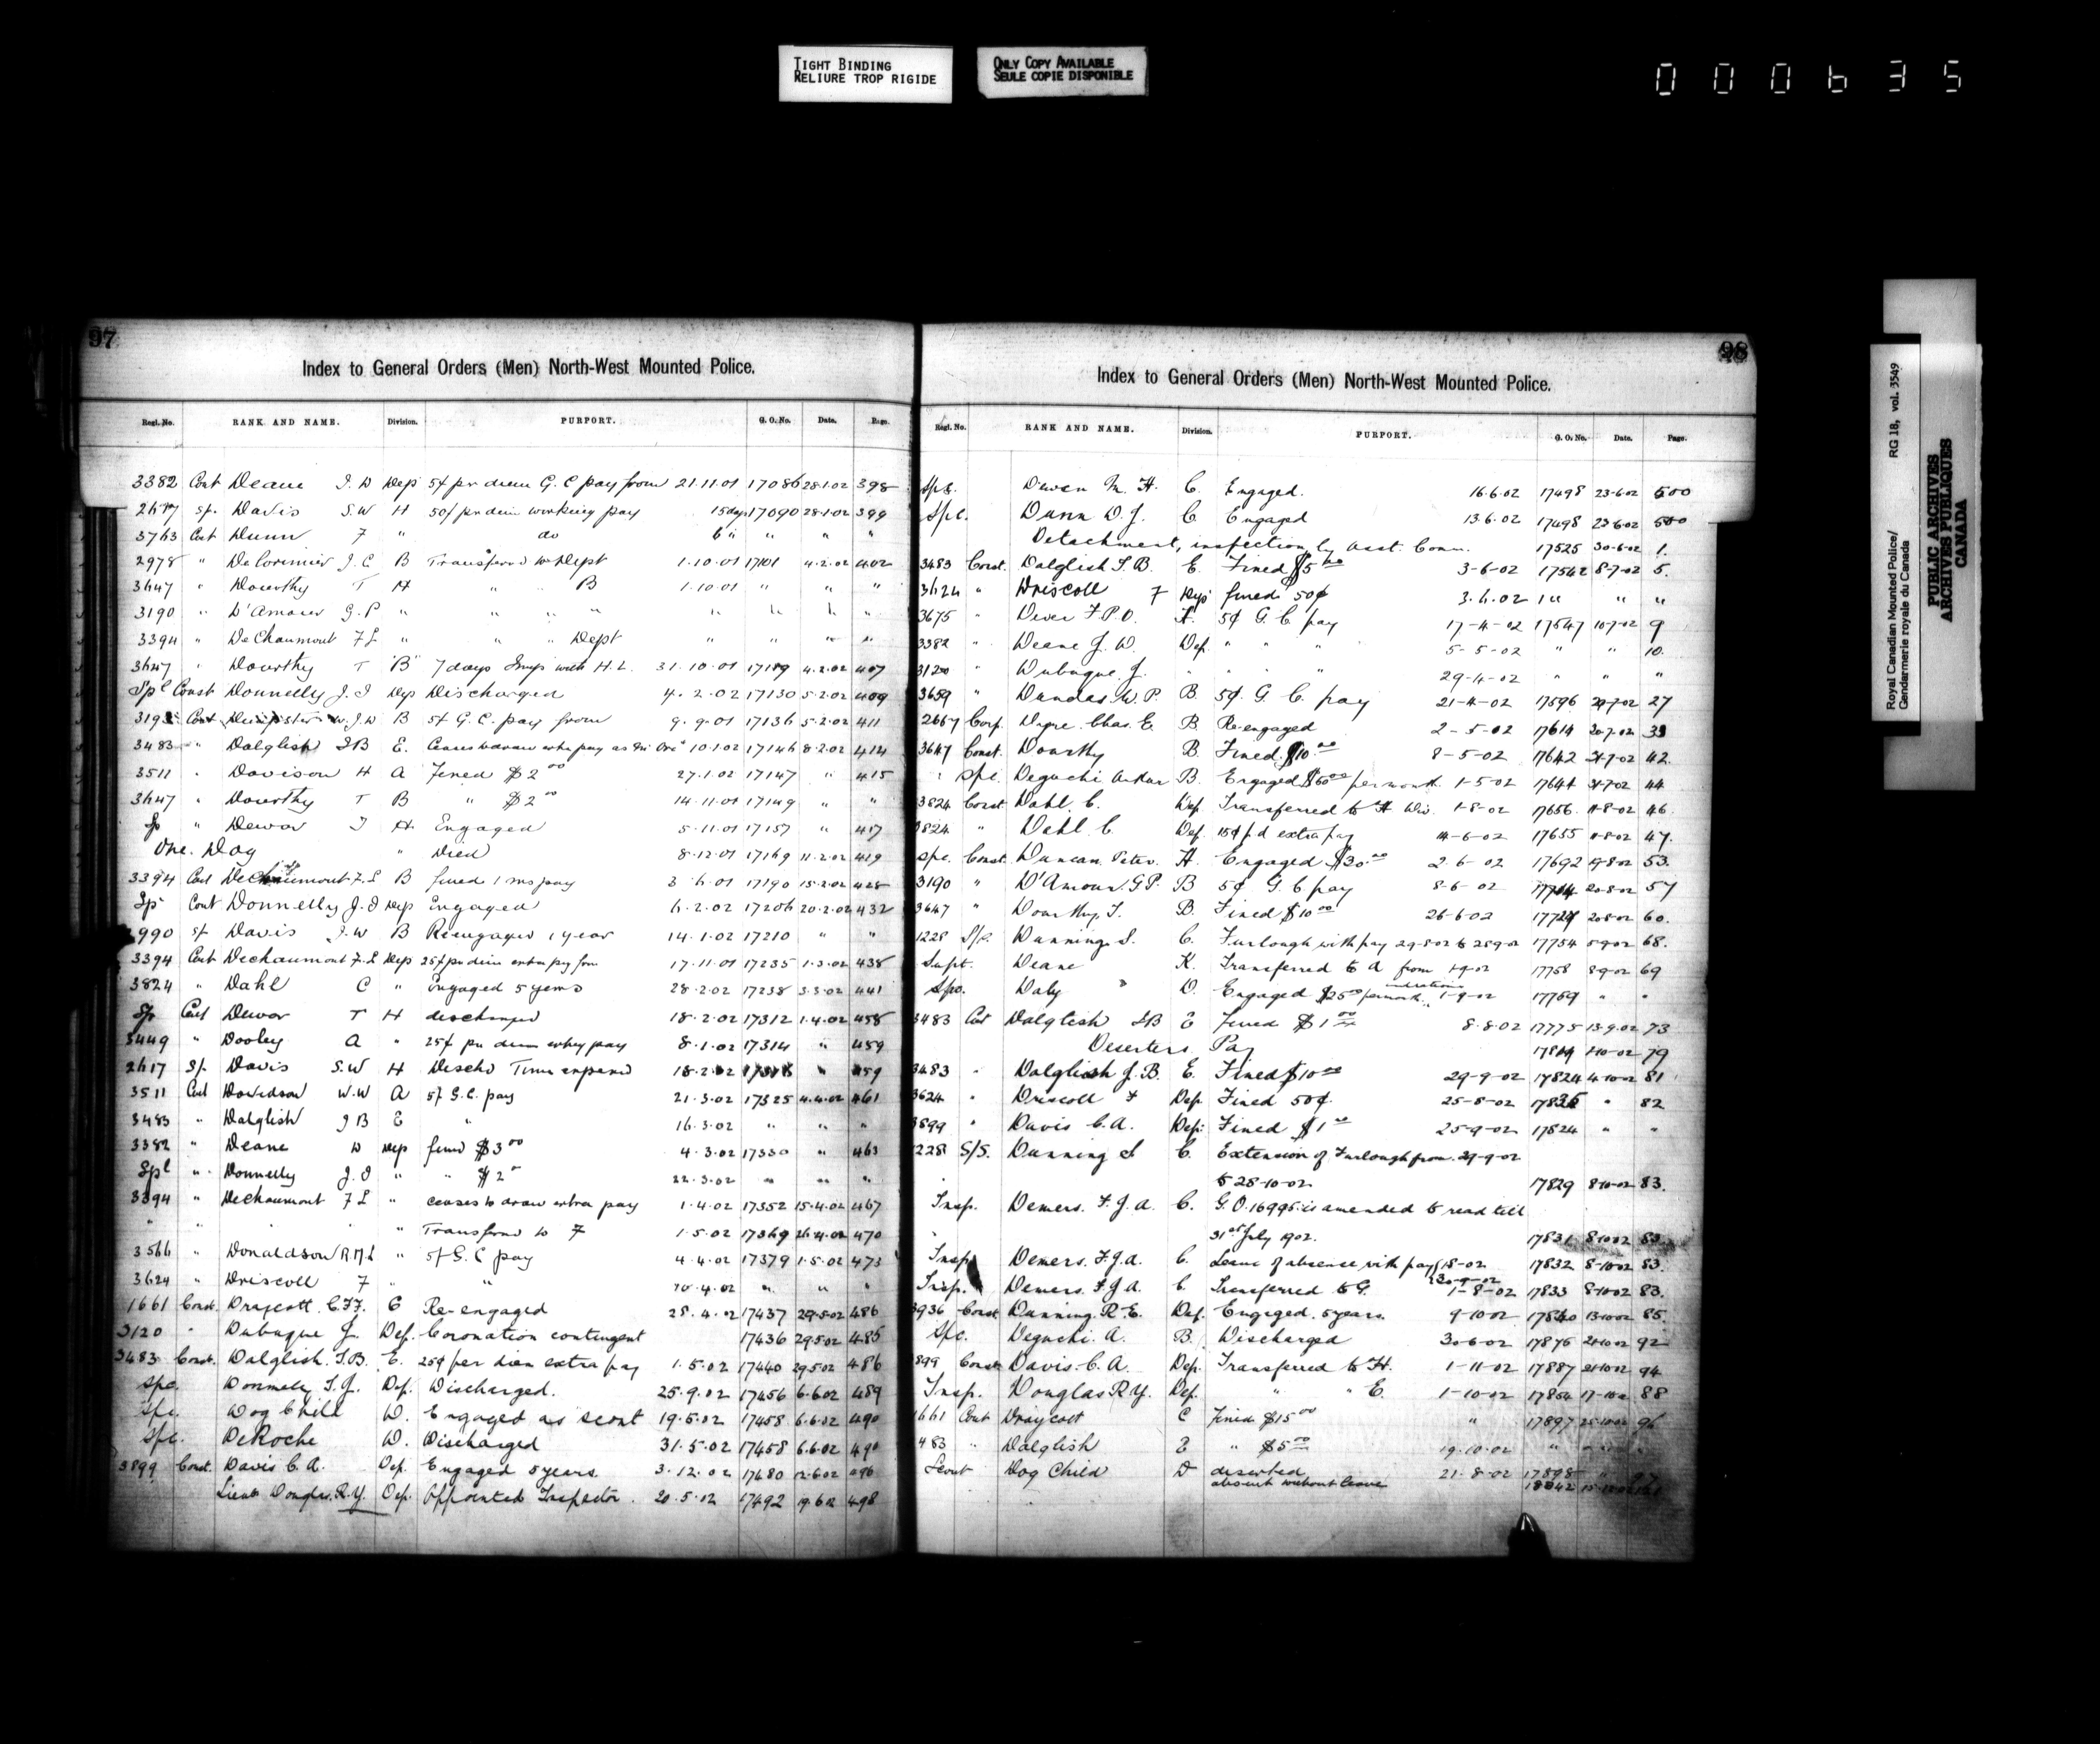 TIGHT BINDING
RELIURE TROP RIGIDE
ONLY COPY AVAILABLE
SEULE COPIE DISPONIBLE
000635
97
Index to General Orders (Men) North-West Mounted Police.
Regl. No. RANK AND NAME. Division. PURPORT. G. O. No. Date. Page.
3382 Cont Deane J. W Dep 5¢ pr diem G. C pay from 21.11.01 17086 28.1.02 398
2617 Sp. Davis S.W H 50¢ pr diem working pay 15 days 17090 28.1.02 399
3763 Cont Dunn F " do 6 " " " "
2978 " DeLorimier J. C B Transferred to Dept 1.10.01 17101 4.2.02 402
3647 " Dourthy T H " " B 1.10.01 " " "
3190 " D'Amour G. P " " " " " " " "
3394 " DeChaumont F L " " " Dept " " " "
3647 " Dourthy T "B" 7 days Imp with H. L. 31.10.01 17119 4.2.02 407
Spl Const Donnelly J. J Dep Discharged 4.2.02 17130 5.2.02 409
Cont Dempster W. J. W B 5¢ G. C. pay from 9.9.01 17136 5.2.02 411
3483 " Dalglish J B E. 10.1.02 17146 8.2.02 414
3511 " Davison H A Fined $2 00 27.1.02 17147 " 415
3647 " Dourthy T B " $2 00 14.11.01 17149 " "
Sp " Dewar T H Engaged 5.11.01 17157 " 417
One. Dog " Died 8.12.01 17169 11.2.02 419
3394 Cont Dechaumont F. L B fined 1 mo pay 3 6.01 17190 15.2.02 425
Sp Cont Donnelly J. J Dep Engaged 6.2.02 17206 20.2.02 432
990 S/. Davis J. W B Re-engaged 1 year 14.1.02 17210 " "
3394 Cont Dechaumont F. L Dep 25¢ pr diem extra pay from 17.11.01 17235 1.3.02 438
3824 " Dahl C " Engaged 5 years 28.2.02 17238 3.3.02 441
Sp Cont Dewar T H discharged 18.2.02 17312 1.4.02 458
3449 " Dooley A " 25¢ pr diem extra pay 8.1.02 17314 " 459
2617 S/. Davis S.W H Dischd Time expired 18.2.02 " 459
3511 Cont Davidson W. W A 5¢ G.C. pay 21.3.02 17325 4.4.02 461
3483 " Dalglish J B E " 16.3.02 " " "
3382 " Deane W Dep fined $3 00 4.3.02 17330 " 463
Spl " Donnelly J. J " " $2 22.3.02 " " "
3394 " Dechaumont F L " ceases to draw extra pay 1.4.02 17352 15.4.02 467
" " " " Transferred to F 1.5.02 17369 26.4.02 470
3566 " Donaldson R M L " 5¢ G. C pay 4.4.02 17379 1.5.02 473
3624 " Driscoll F " " 4.02 " " "
1661 Const. Draycott. C. F. F. C Re-engaged 28.4.02 17437 29.5.02 486
3120 " Dubuque J. Dep. Coronation contingent 17436 29.5.02 485
3483 Const. Dalglish. J. B. E. 25¢ per diem extra pay 1.5.02 17440 29.5.02 486
Spc. Donnely J. J. Dep. Discharged. 25.9.02 17456 6.6.02 489
Spc. Dog Child D. Engaged as scout 19.5.02 17458 6.6.02 490
Spc. DeRoche D. Discharged 31.5.02 17458 6.6.02 490
3899 Const. Davis C. A. Dep. Engaged 5 years. 3.12.02 17480 12.6.02 496
Lieut Douglas. R. Y. Dep. Appointed Inspector. 20.5.02 17492 19.6.02 498
98
Index to General Orders (Men) North-West Mounted Police.
Regl. No. RANK AND NAME. Division. PURPORT. G. O. No. Date. Page.
Spc. Dewan M. H. C. Engaged. 16.6.02 17498 23-6-02 500
Spc. Dunn D. J. C. Engaged 13.6.02 17498 23-6-02 500
Detachment, inspection by Asst. Comm. 17525 30-6-02 1.
3483 Const. Dalglish J. B. E. Fined $5 00 3-6-02 17542 8-7-02 5.
3624 " Driscoll F Dep fined 50¢ 3.6.02 " " "
3675 " Diver F. P. O. K. 5¢ G. C pay 17-4-02 17547 10-7-02 9
3382 " Deane J. W. Dep. " " " 5-5-02 " " 10.
3120 " Dubuque J. " 29-4-02 " " "
3659 " Dundas. W. P. B 5¢. G. C. pay 21-4-02 17596 27
2667 Corp. Dyre. Chas. E. B. Re-engaged 2-5-02 17614 20-7-02 33
3647 Const. Dourthy B. Fined. $10 00 8-5-02 17642 31-7-02 42.
" Spc. Deguchi Arthur B. Engaged $60 00 per month 1-5-02 17644 31-7-02 44
3824 Const Dahl. C. Dep Transferred to H Div. 1-8-02 17656. 11-8-02 46.
3824 " Dahl C Dep. 15¢ p.d extra pay 14-6-02 17655 11-8-02 47.
Spc. Const. Duncan Peter. H. Engaged $30 00 2-6-02 17692 19-8-02 53.
3190 " D'Amour. G. P. B 5¢ G. C pay 8-6-02 17714 20-8-02 57
3647 " Dourthy, T. B. Fined $10 00 26-6-02 17724 20-8-02 60.
1228 S/S. Dunning S. C. Furlough with pay 29-8-02 to 28-9-02 17754 5-9-02 68.
Supt. Deane K. Transferred to A from 1-9-02 17758 8-9-02 69
Spc. Daly " D. Engaged $25 00 per month 1-9-02 17769 " "
3483 Cont Dalglish J B E fined $1 00 8.8.02 17775 13.9.02 73
Deserters Pay 17814 1-10-02 79
3483 " Dalglish J. B. E. Fined $10 00 29-9-02 17824 4-10-02 81
3624 " Driscoll F Dep. Fined 50¢. 25-8-02 " 82
3899 " Davis C. A. Dep. Fined $1 00 25-9-02 17824 " "
1228 S/S. Dunning S C. Extension of Furlough from 29-9-02
to 28-10-02. 17829 8-10-02 83.
Insp. Demers. F. J. A. C. G. O. 16995 is amended to read till
31st July 1902. 17831 8-10-02 83
Insp. Demers. F. J. A. C. Leave of absence with pay 1-8-02 17832 8-10-02 83.
30-9-02
Insp. Demers. F. J. A. C Transferred to G. 1-8-02 17833 8-10-02 83.
3936 Const. Dunning. R. E. Dep. Engaged. 5 years. 9-10-02 17840 13-10-02 85.
Spc. Deguchi. A. B. Discharged 30-6-02 17876 21-10-02 92
899 Const Davis. C. A. Dep. Transferred to H. 1-11-02 17887 21-10-02 94
Insp. Douglas R Y. Dep. " " E. 1-10-02 17864 17-10-02 88
1661 Cont Draycott C Fined $15 00 " 17897 25-10-02 96
483 " Dalglish E " $5 00 19.10.02 " "
Scout Dog Child D deserted 21.8.02 17898 " 97
absent without leave
Royal Canadian Mounted Police/
Gendarmerie royale du Canada
RG 18, vol. 3549
PUBLIC ARCHIVES
ARCHIVES PUBLIQUES
CANADA